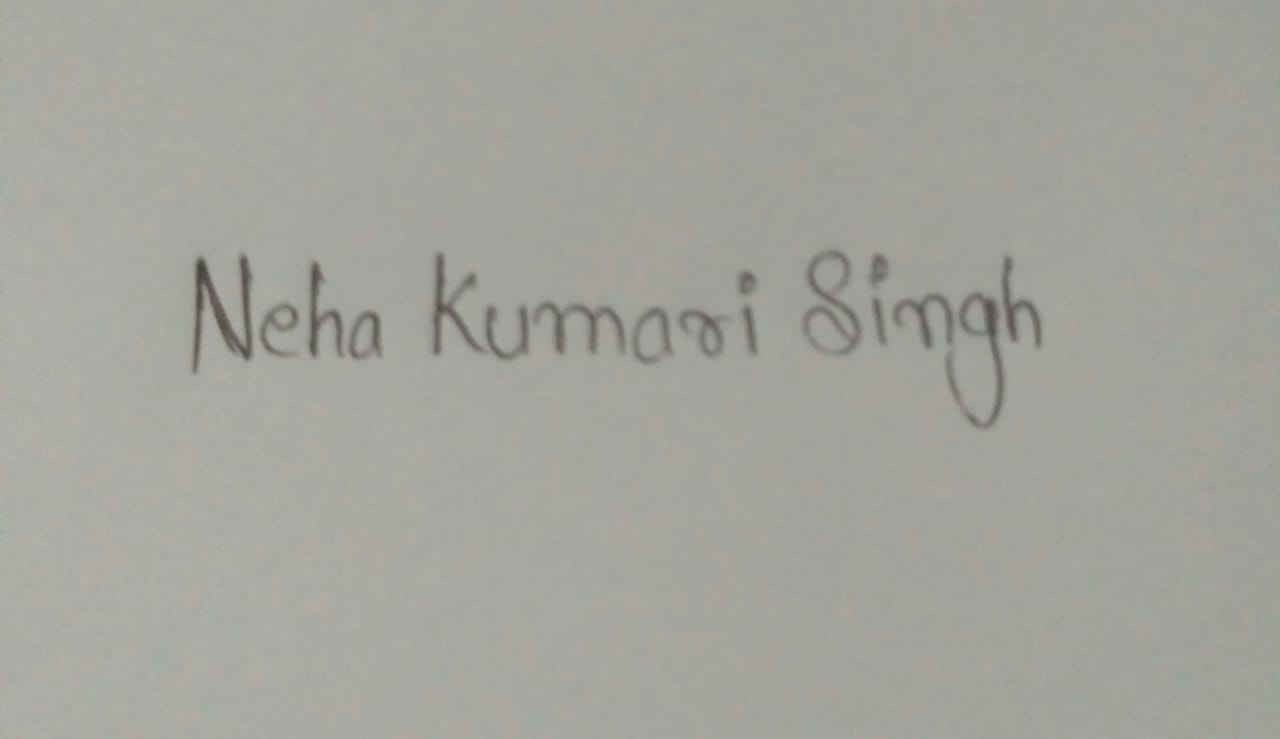 Neha Kumari Singh